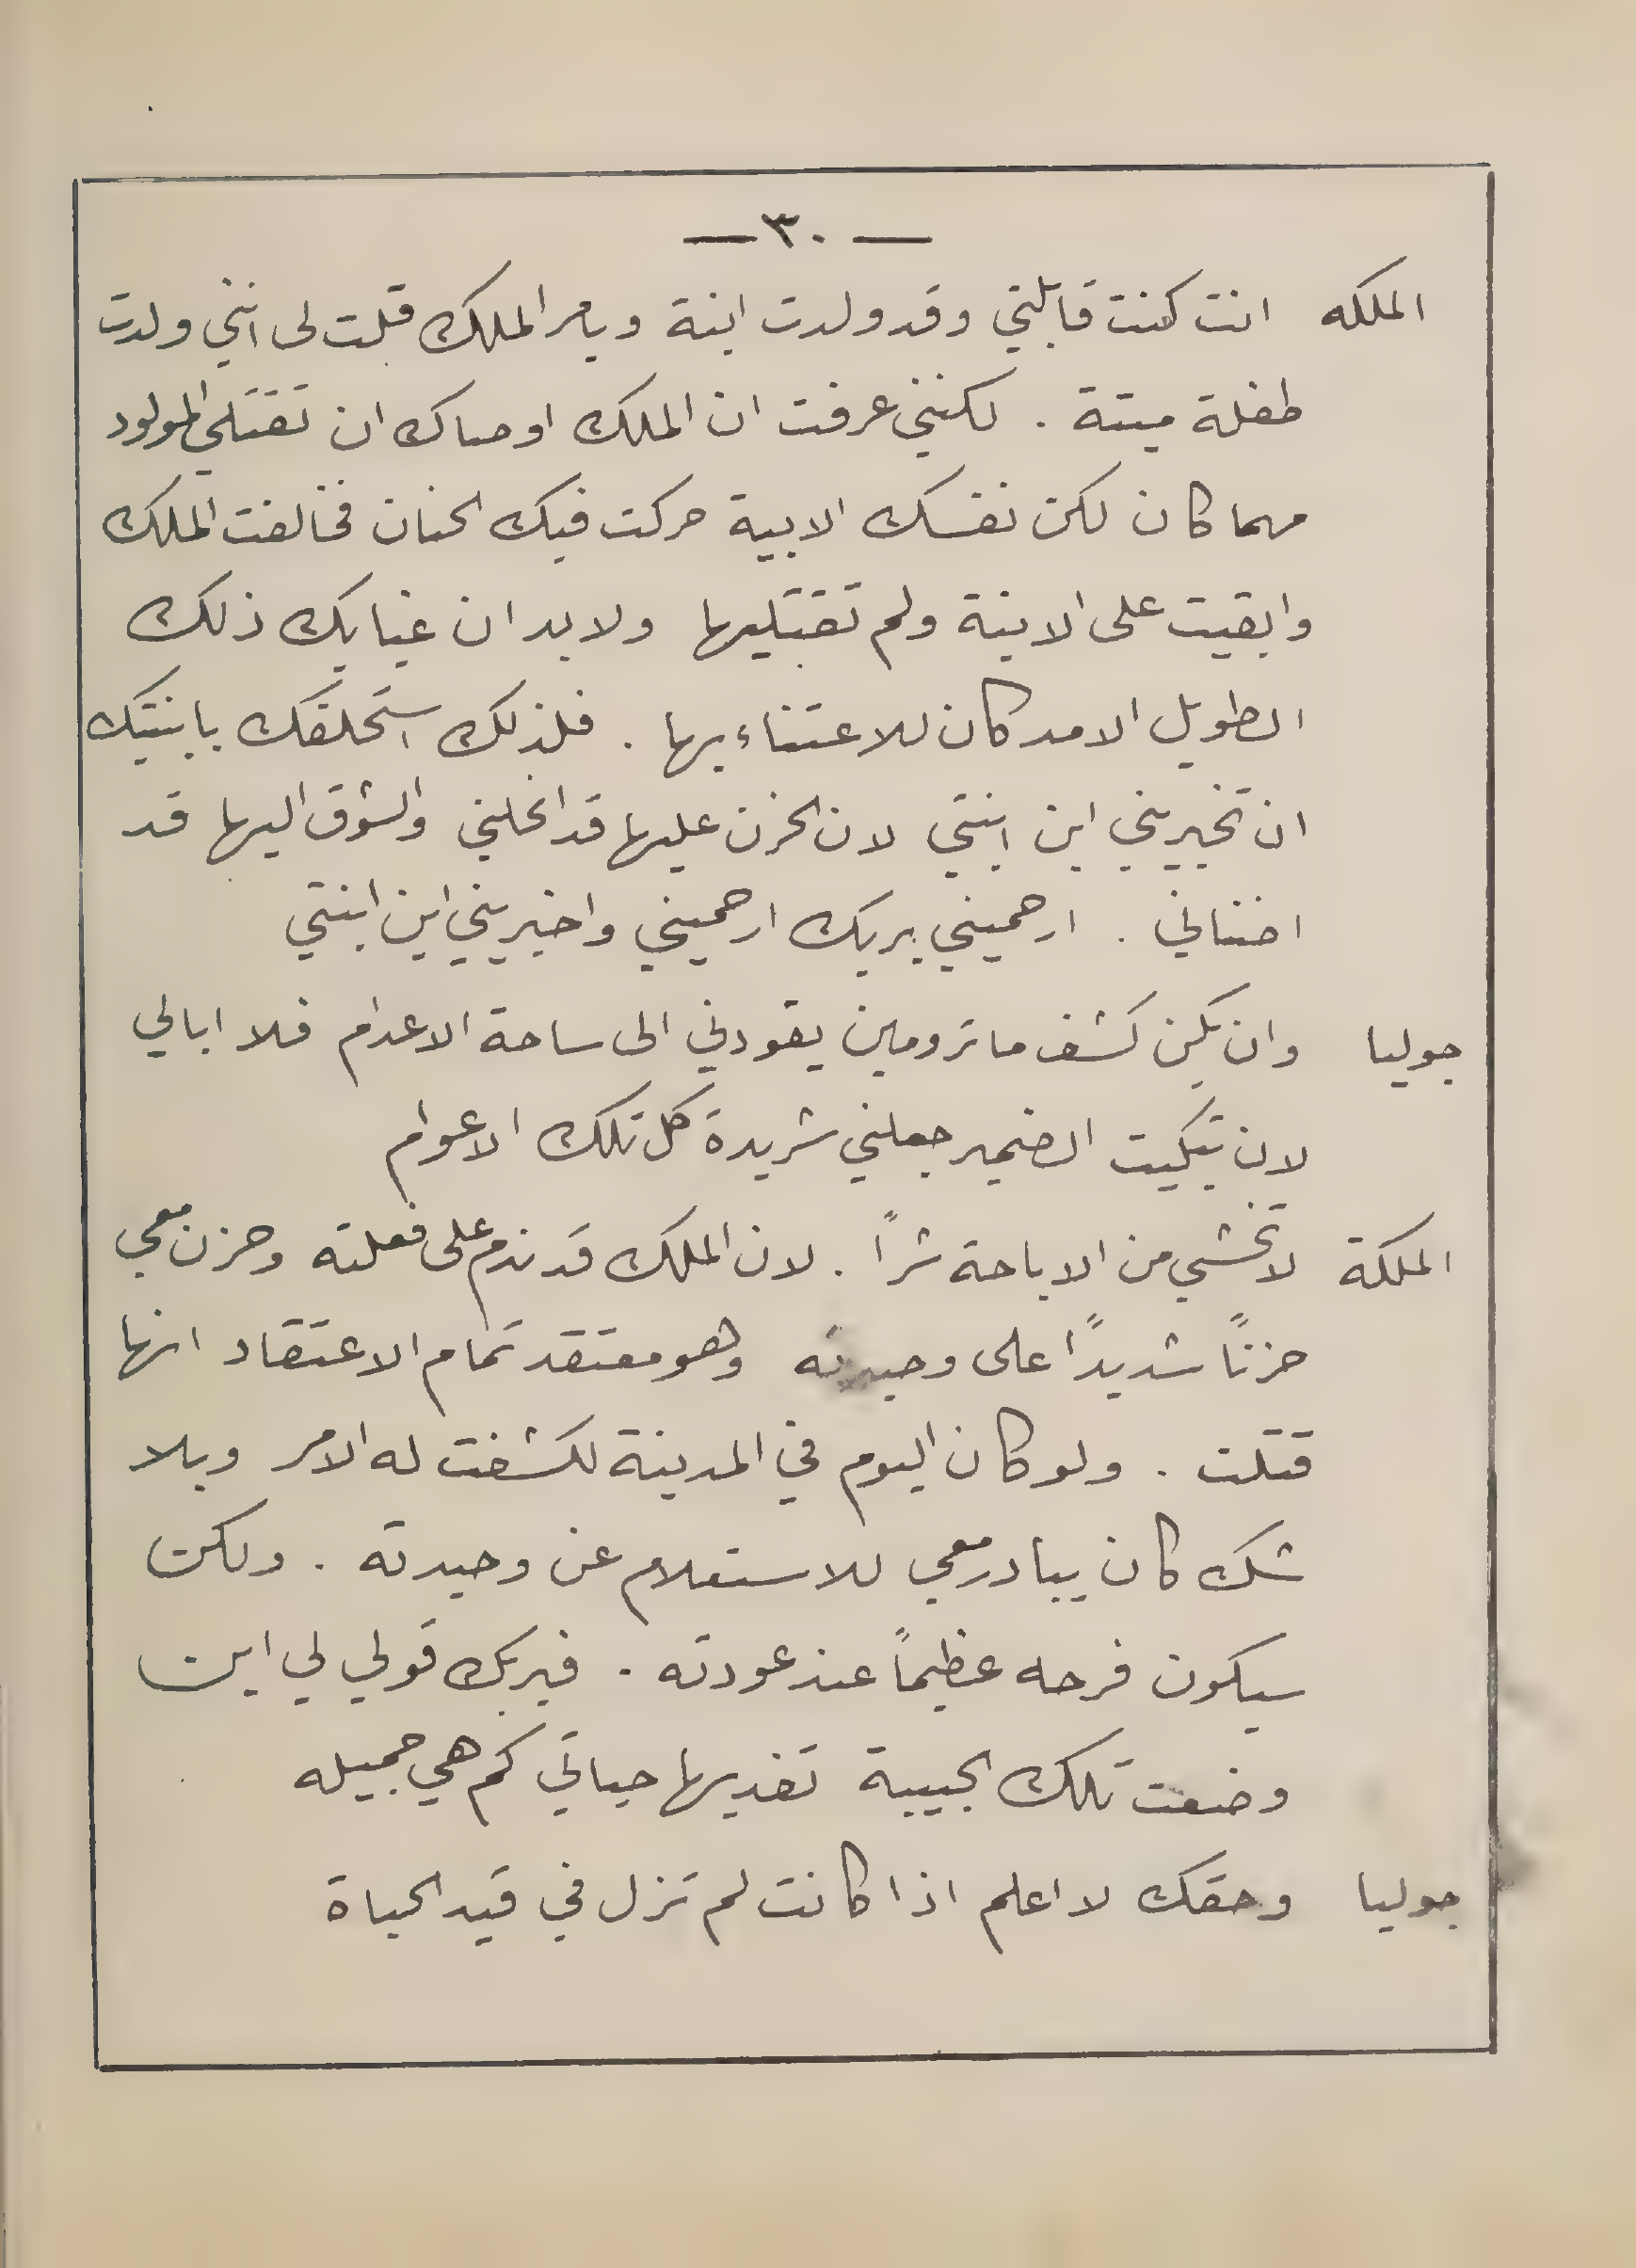 — ٣٠ —
الملكه انت كنت قابلتي وقد ولدت ابنة وبامر الملك قلت لى انني ولدت
طفلة ميتة . لكنني عرفت ان الملك اوصاك ان تقتلي المولود
مهما كان لكن نفسك الابية حركت فيك الحنان فخالفت الملك
وابقيت على الابنة ولم تقتليها ولا بد ان غيابك ذلك
الطويل الامد كان للاعتناء بها . فلذلك استحلفك بابنتك
ان تخبريني اين ابنتي لان الحزن عليها قد انحلني والشوق اليها قد
اضناني . ارحميني بربك ارحميني واخبريني اين ابنتي
جوليا وان يكن كشف ما ترومين يقودني الى ساحة الاعدام فلا ابالي
لان تبكيت الضمير جعلني شريدة كل تلك الاعوام
الملكة لا تخشي من الاباحة شراً . لان الملك قد ندم على فعلته وحزن معي
حزناً شديداً على وحيدته وهو معتقد تمام الاعتقاد انها
قتلت . ولو كان اليوم في المدينة لكشفت له الامر وبلا
شك كان يبادر معي للاستعلام عن وحيدته . ولكن
سيكون فرحه عظيماً عند عودته . فبربك قولي لي اين
وضعت تلك الحبيبة تفديها حياتي كم هي جميله
جوليا وحقك لا اعلم اذا كانت لم تزل في قيد الحياة